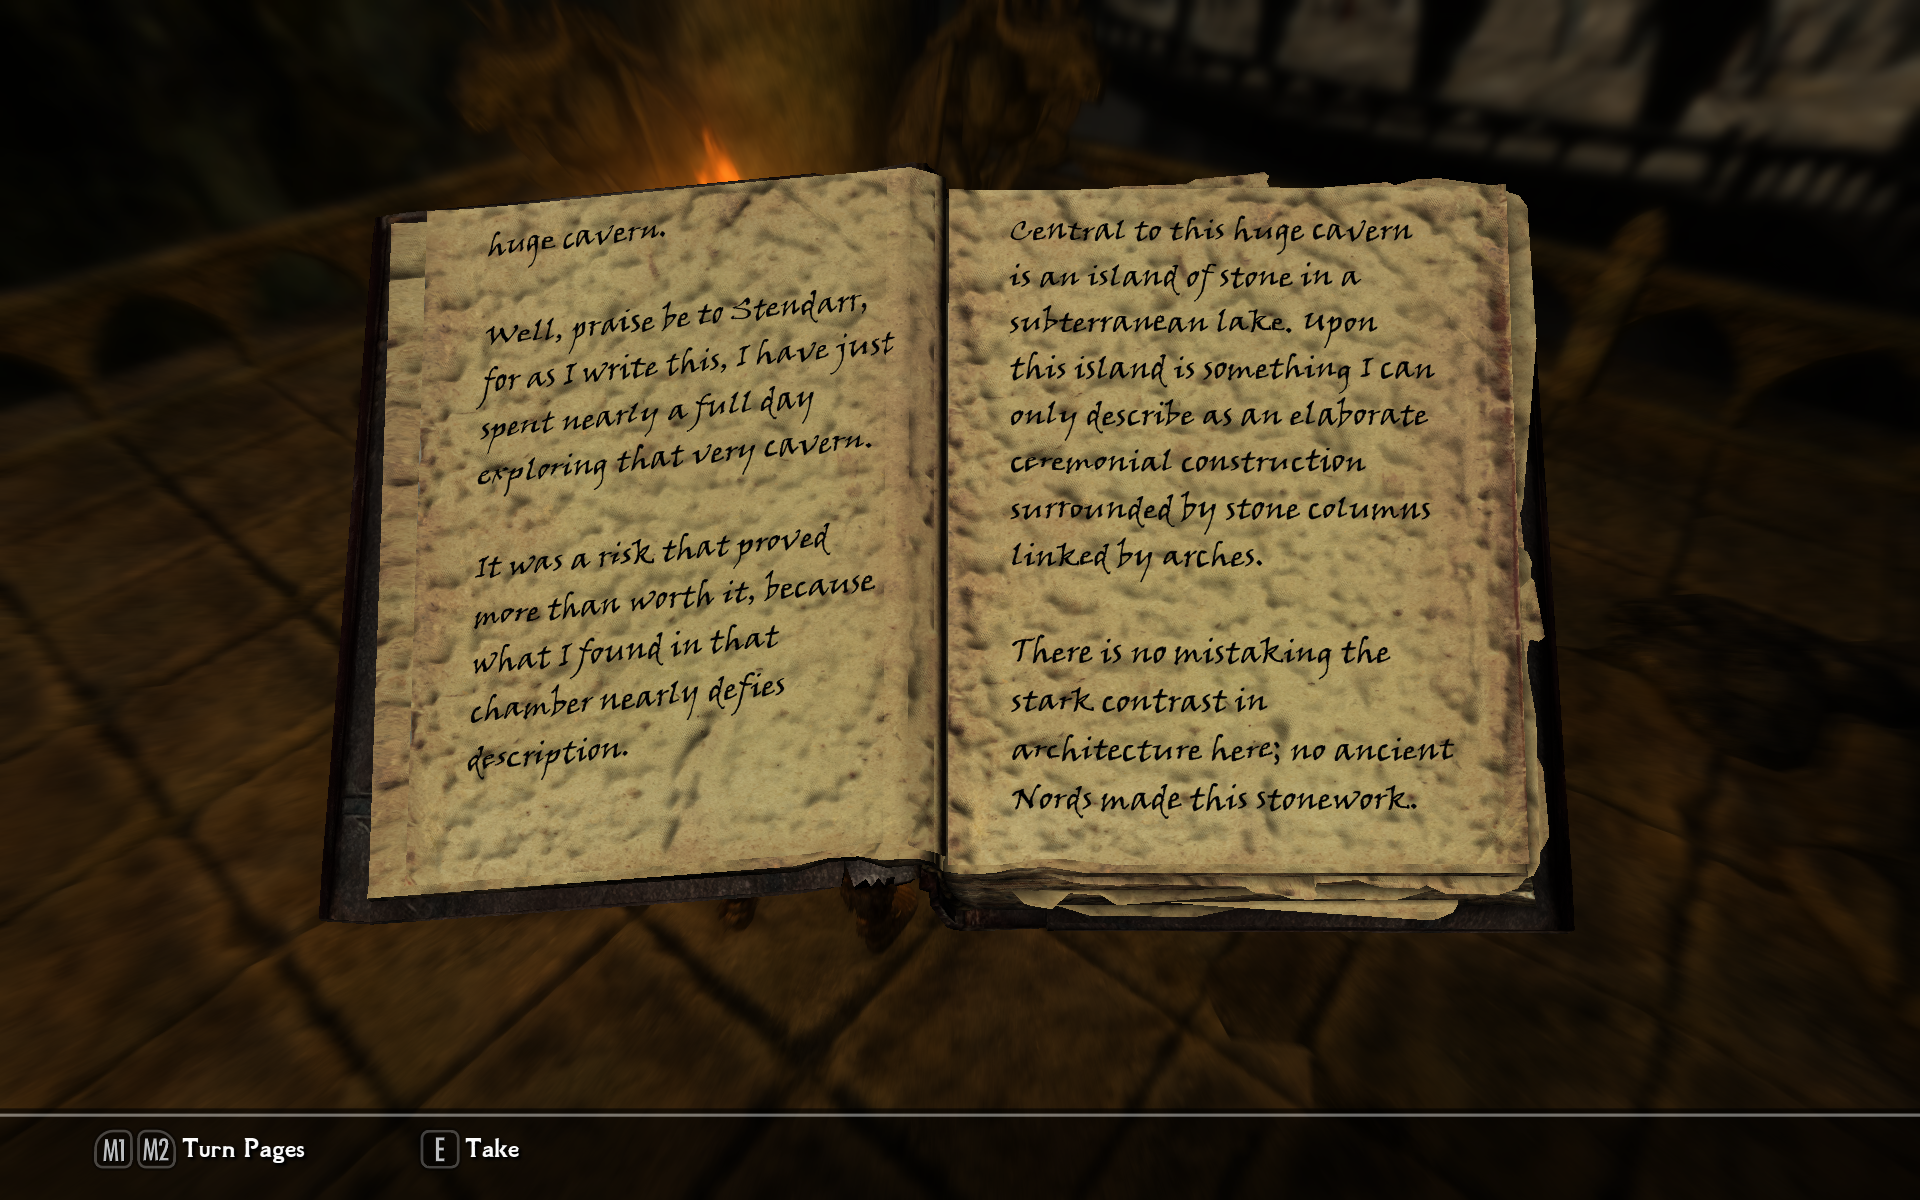 huge cavern.
Well, praise be to Stendarr,
for as I write this, I have just
spent nearly a full day
exploring that very cavern.
It was a risk that proved
more than worth it, because
what I found in that
chamber nearly defies
description.
Central to this huge cavern
is an island of stone in a
subterranean lake. Upon
this island is something I can
only describe as an elaborate
ceremonial construction
surrounded by stone columns
linked by arches.
There is no mistaking the
stark contrast in
architecture here; no ancient
Nords made this stonework.
M1 M2 Turn Pages
E Take